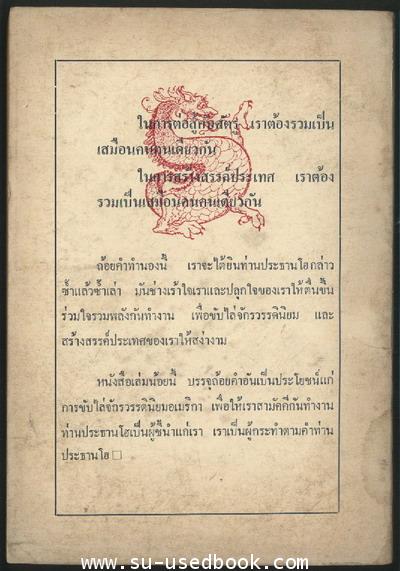 ในการต่อสู้กับศัตรู เราต้องรวมเป็น
เสมือนคนคนเดียวกัน
ในการสร้างสรรค์ประเทศ เราต้อง
รวมเป็นเสมือนคนคนเดียวกัน
ถ้อยคำทำนองนี้ เราจะได้ยินท่านประธานโฮกล่าว
ซ้ำแล้วซ้ำเล่า มันช่างเร้าใจเราและปลุกใจของเราให้ตื่นขึ้น
ร่วมใจรวมพลังกันทำงาน เพื่อขับไล่จักรวรรดินิยม และ
สร้างสรรค์ประเทศของเราให้สง่างาม
หนังสือเล่มน้อยนี้ บรรจุถ้อยคำอันเป็นประโยชน์แก่
การขับไล่จักรวรรดินิยมอเมริกา เพื่อให้เราสามัคคีกันทำงาน
ท่านประธานโฮเป็นผู้ชี้นำแก่เรา เราเป็นผู้กระทำตามคำท่าน
ประธานโฮ □
www.su-usedbook.com